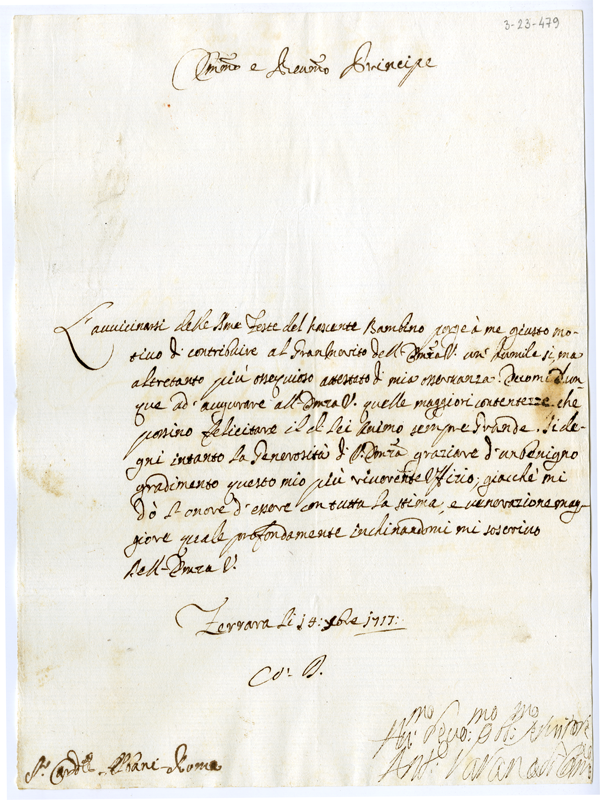 3-23-479
Emmo e Revmo Principe
L'avvicinarsi delle SSme Feste del Nascente Bambino porge à me giusto mo-
tivo di contribuire al Gran Merito dell' Emza V. un' humile si, ma
altretanto più ossequioso attestato di mia osservanza. Duomi dun
que ad' augurare all' Emza V. quelle maggiori contentezze, che
possino felicitare il di Lei Animo sempre Grande. Si de-
gni intanto la Generosità di V. Emza graziare d'un benigno
gradimento questo mio più riverente Uffizio, giacchè mi
dò l'onore d'essere con tutta la stima, e venerazione mag-
giore quale profondamente inchinandomi mi soscrivo
Dell' Emza V.
Ferrara li 15: Xbre 1717:
Hu:mo Devo:mo Ob:mo Servitore
Ant:
Sr Cardle Albani Roma